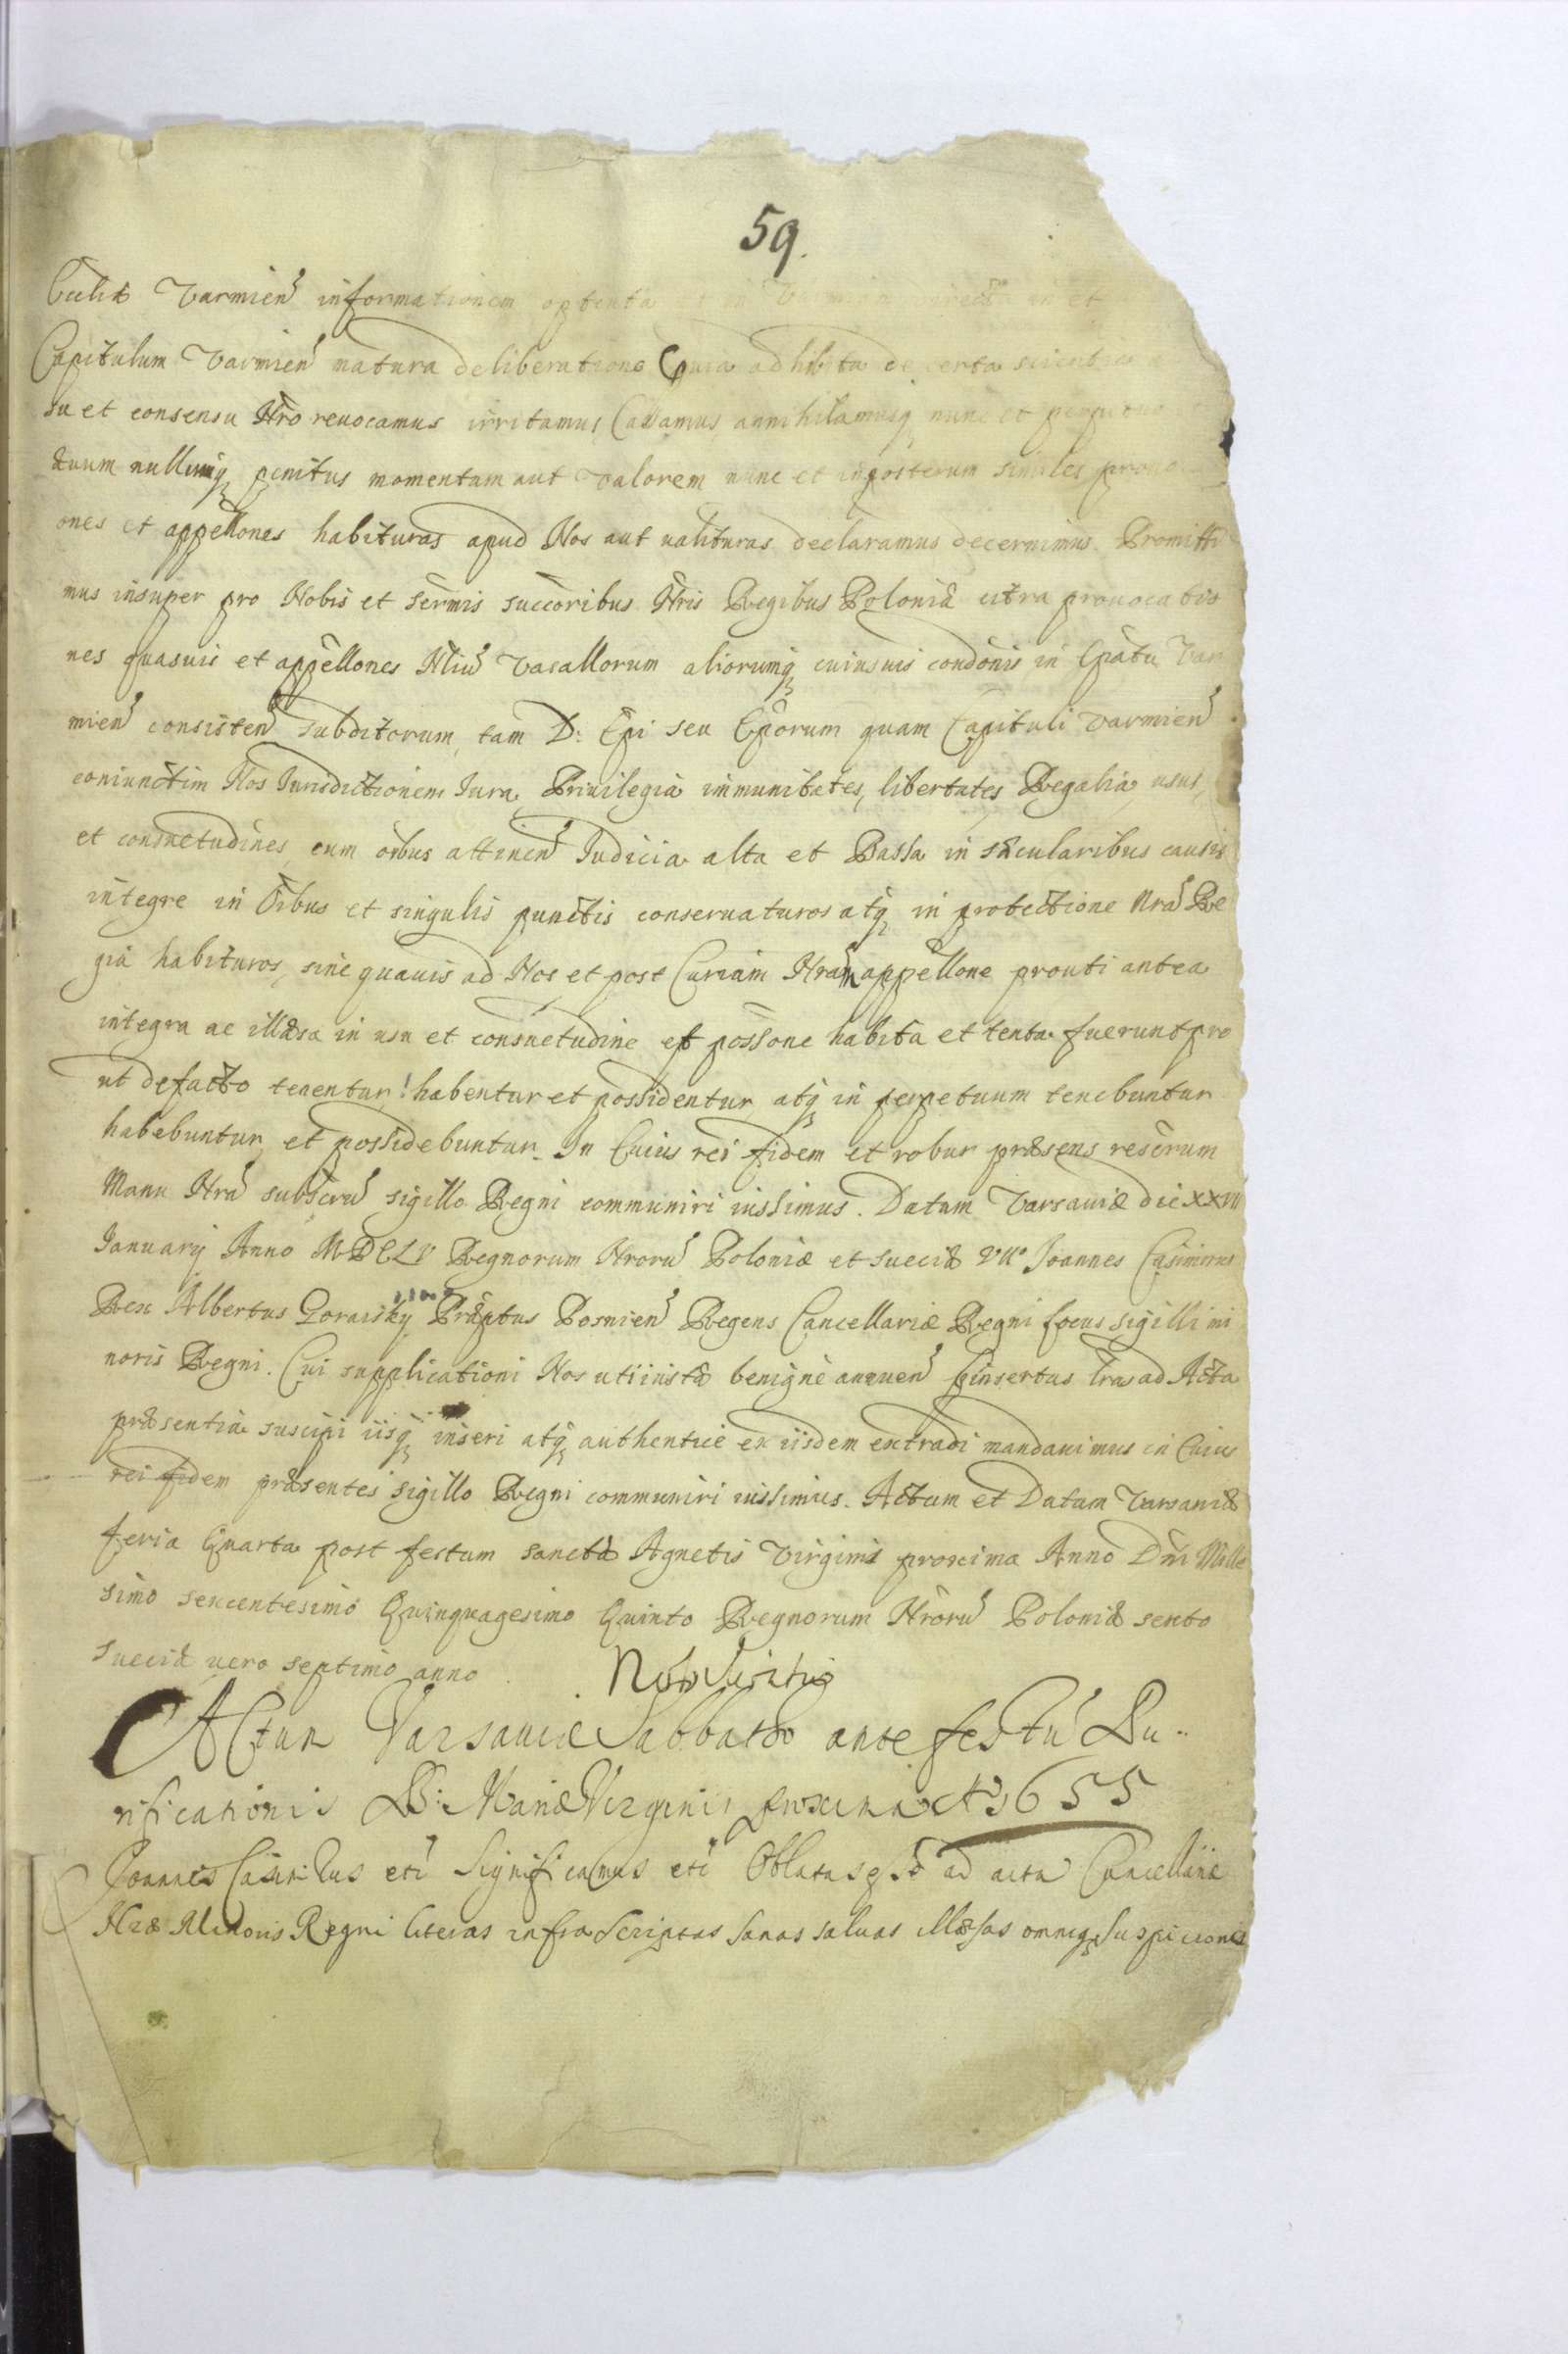 59.
Ecclie Varmien informationem optenta et
Capitulum Varmien matura deliberatione quia adhibita de certa scientia
su et consensu Nro reuocamus irritamus Cassamus annihilamusq nunc et perpetuo
tuum nullumq penitus momentum aut valorem nunc et inposterum similes prouo
ones et appellones habituras apud Nos aut ualituras declaramus decernimus. Promitti
mus insuper pro Nobis et sermis succoribus Nris Regibus Poloniæ citra prouocatio
nes quasuis et appellones Nliu Vasallorum aliorumq cuiusuis condonis in Epatu Var
mien consisten subditorum, tam D: Epi seu Eporum quam Capituli Varmien
coniunctim Nos Iurisdictionem Iura, Priuilegia immunitates, libertates Regalia, usus,
et consuetudines, cum oibus attinen Iudicia alta et Bassa in sæcularibus causis
integre in Oibus et singulis punctis conseruaturos atq in protectione Nra Re
gia habituros, sine quauis ad Nos et post Curiam Nram appellone prouti antea
integra ac illæsa in usu et consuetudine et possone habita et tenta fuerunt pro
ut defacto tenentur habentur et possidentur atq in perpetuum tenebuntur
habebuntur et possidebuntur. In Cuius rei fidem et robur præsens rescrum
Manu Nra subscru sigillo Regni communiri iussimus. Datum Varsauiæ die XXVII
Ianuarij Anno MDCLV Regnorum Nroru Poloniæ et Sueciæ VII Joannes Casimirus
Rex Albertus Goraisky Præptus Posnien Regens Cancellariæ Regni Locus sigilli mi
noris Regni. Cui supplicationi Nos uti iustæ benigne annuen insertas Lras ad Acta
præsentia suscipi iisq inseri atq authentice ex iisdem extradi mandauimus in Cuius
rei fidem præsentes sigillo Regni communiri iussimus. Actum et Datum Varsauiæ
feria Quarta post festum sanctæ Agnetis Virginis proxima Anno Dni Mille
simo sexcentesimo Quinquagesimo Quinto Regnorum Nroru Poloniæ sexto
Sueciæ uero septimo anno
Actum Varsauiæ Sabbatho ante festu Pu-
rificationis B: Mariæ Virginis proxima A 1655
Joannes Casimirus etc Significamus etc Oblatas esse ad acta Cancellariæ
Nræ Minoris Regni literas infra scriptas sanas saluas illæsas omniq suspicione